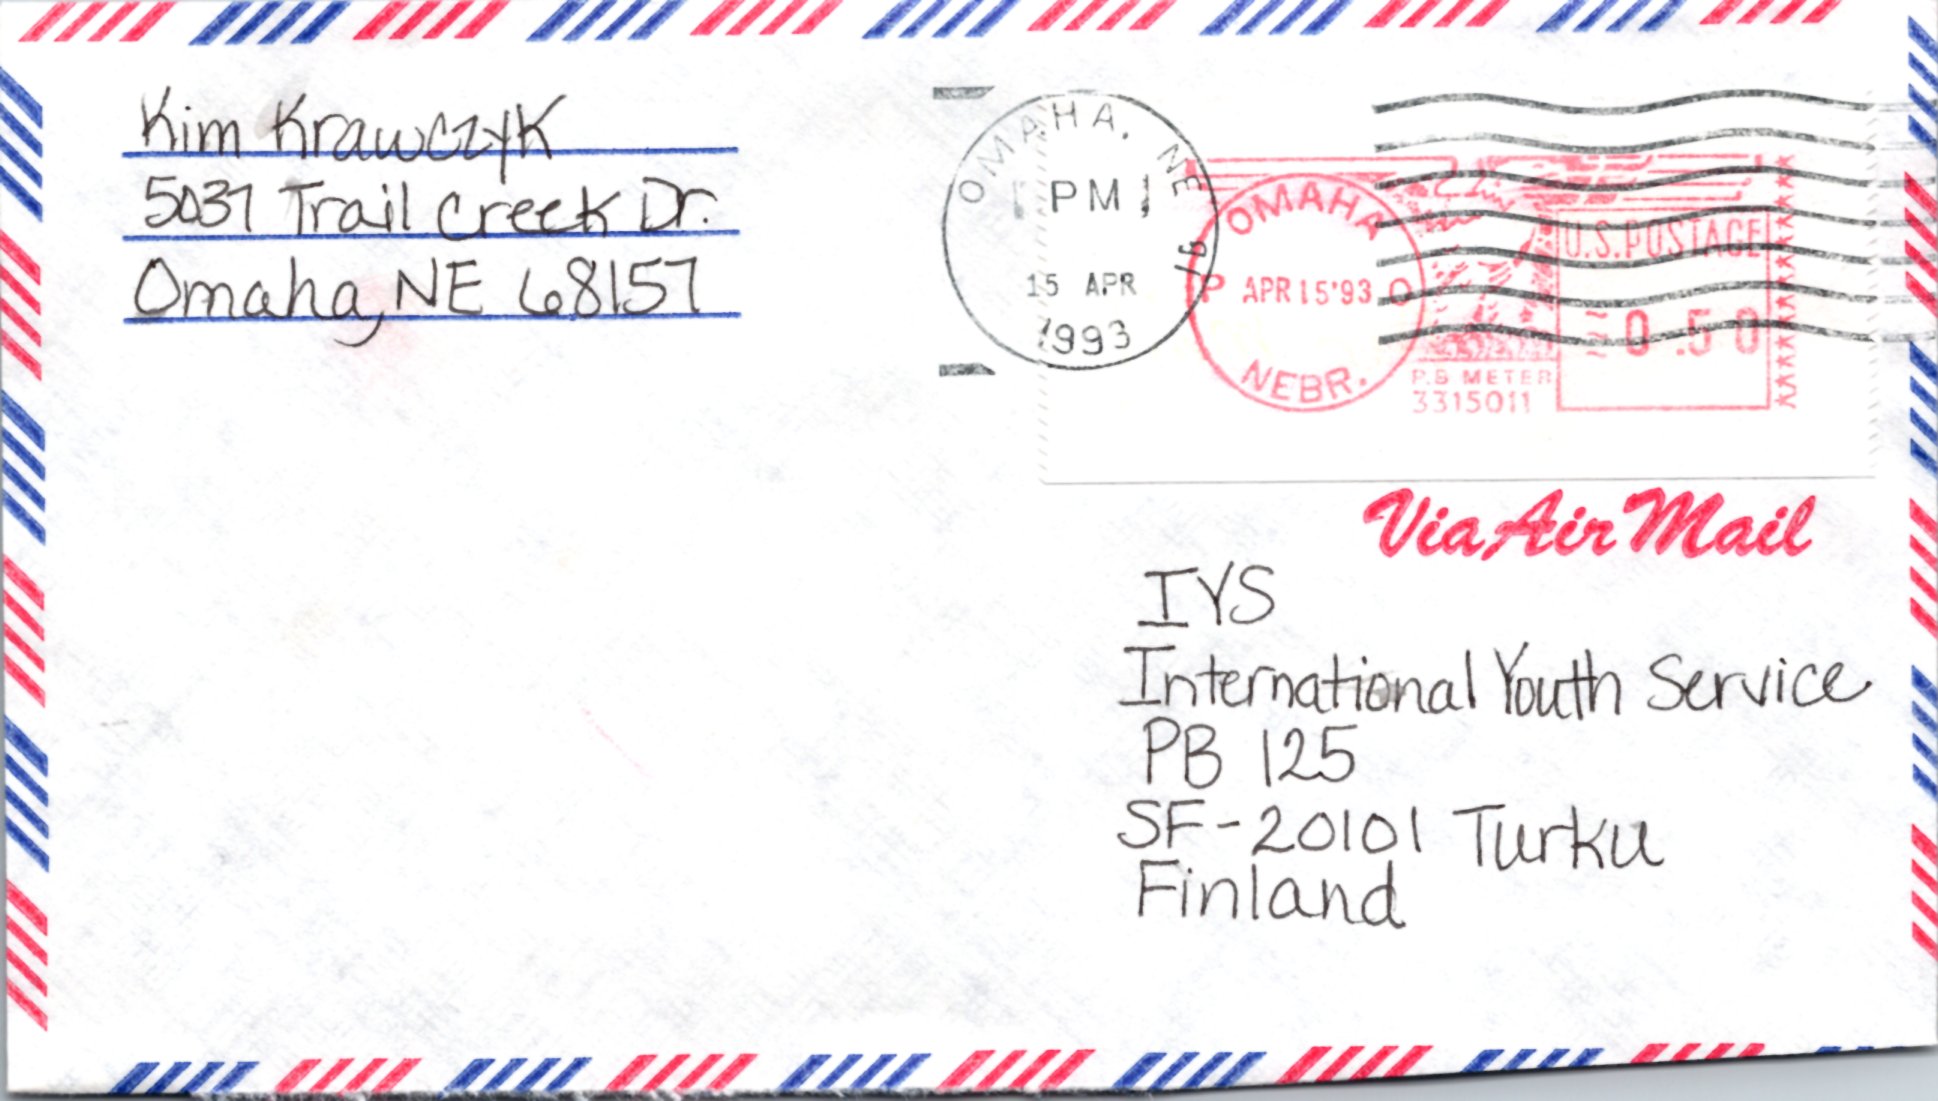 Kim Krawczyk
5037 Trail Creek Dr.
Omaha, NE 68157
OMAHA, NE
PM
15 APR
1993
OMAHA
P APR 15'93 O
NEBR.
P.B METER
3315011
U.S.POSTAGE
0.50
Via Air Mail
IYS
International Youth Service
PB 125
SF-20101 Turku
Finland